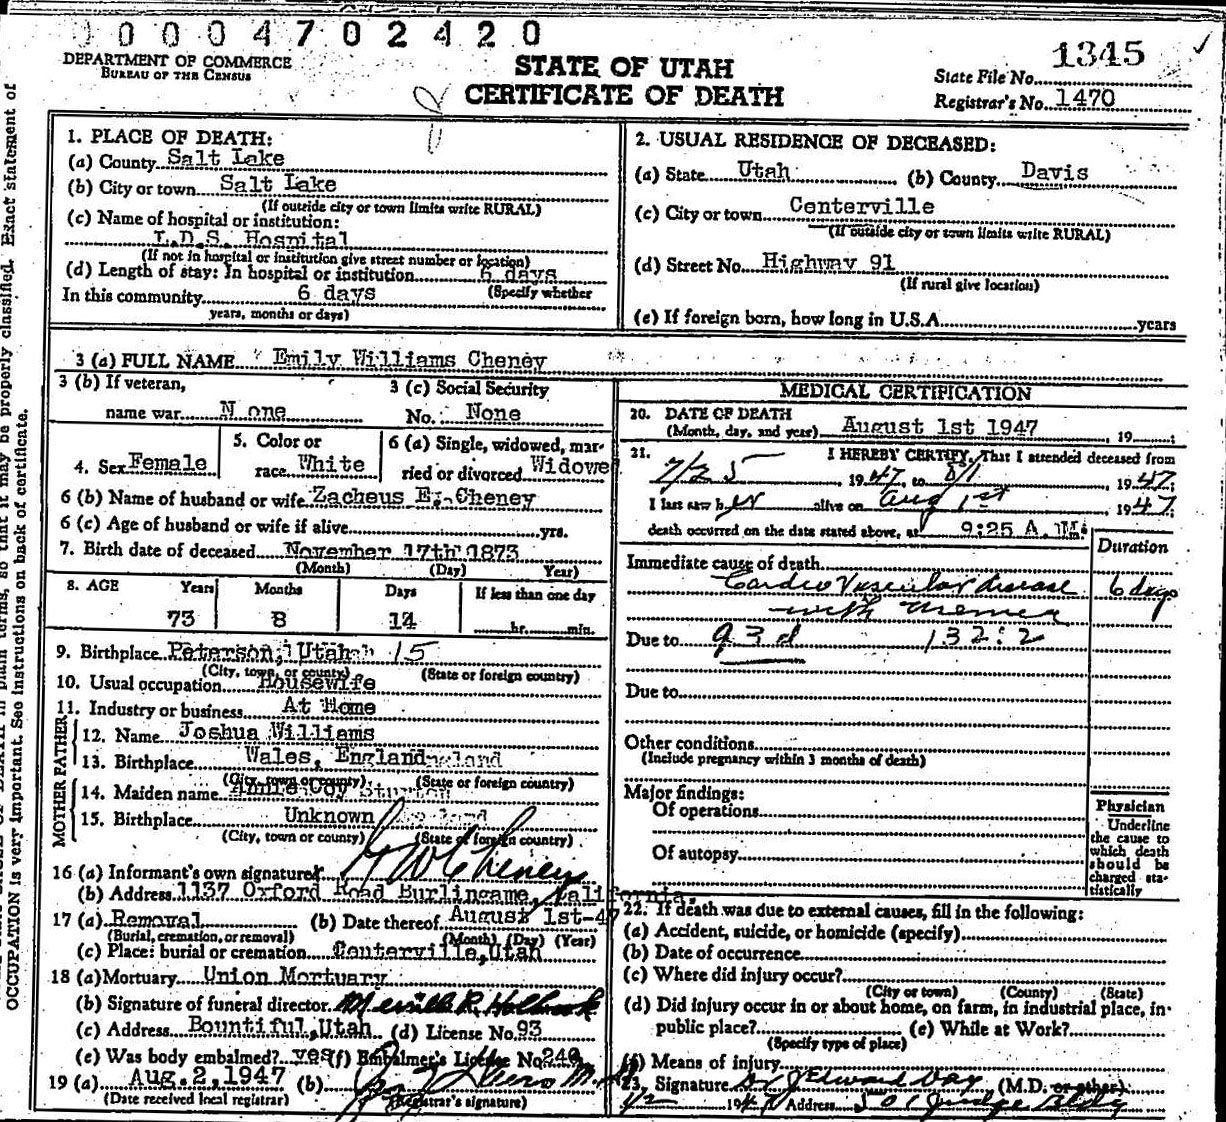 0 0 0 0 4 7 0 2 4 2 0
1345
DEPARTMENT OF COMMERCE
BUREAU OF THE CENSUS
STATE OF UTAH
CERTIFICATE OF DEATH
State File No.
Registrar's No. 1470
1. PLACE OF DEATH:
(a) County Salt Lake
(b) City or town Salt Lake
(If outside city or town limits write RURAL)
(c) Name of hospital or institution:
L.D.S. Hospital
(If not in hospital or institution give street number or location)
(d) Length of stay: In hospital or institution 6 days
In this community 6 days (Specify whether
years, months or days)
2. USUAL RESIDENCE OF DECEASED:
(a) State Utah (b) County Davis
(c) City or town Centerville
(If outside city or town limits write RURAL)
(d) Street No. Highway 91
(If rural give location)
(e) If foreign born, how long in U.S.A. years
3 (a) FULL NAME Emily Williams Cheney
3 (b) If veteran, 3 (c) Social Security
name war N one No. None
4. Sex Female 5. Color or race White 6 (a) Single, widowed, married or divorced Widowe
6 (b) Name of husband or wife Zacheus E. Cheney
6 (c) Age of husband or wife if alive yrs.
7. Birth date of deceased November 17th 1873
(Month) (Day) Year)
8. AGE Years Months Days If less than one day
73 8 14 hr. min.
9. Birthplace Peterson, Utah 15
(City, town, or county) (State or foreign country)
10. Usual occupation Housewife
11. Industry or business At Home
FATHER
12. Name Joshua Williams
13. Birthplace Wales, England
(City, town or county) (State or foreign country)
MOTHER
14. Maiden name Annie
15. Birthplace Unknown
(City, town or county) (State of foreign country)
16 (a) Informant's own signature Cheney
(b) Address 1137 Oxford Road Burlingame, California.
17 (a) Removal (b) Date thereof August 1st-47
(Burial, cremation, or removal) (Month) (Day) (Year)
(c) Place: burial or cremation Centerville, Utah
18 (a) Mortuary Union Mortuary
(b) Signature of funeral director Merrill R. Holbrook
(c) Address Bountiful, Utah (d) License No. 93
(e) Was body embalmed? yes (f) Embalmer's License No. 240
19 (a) Aug. 2, 1947 (b)
(Date received local registrar) (Registrar's signature)
MEDICAL CERTIFICATION
20. DATE OF DEATH
(Month, day, and year) August 1st 1947, 19
21. I HEREBY CERTIFY, That I attended deceased from
7/25 1947, to 8/1, 1947
I last saw her alive on Aug 1st, 1947
death occurred on the date stated above, at 9:25 A. M.
Duration
Immediate cause of death
Cardio Vascular disease 6 days
with
Due to 93d 132:2
Due to
Other conditions
(Include pregnancy within 3 months of death)
Major findings:
Of operations
Of autopsy
Physician
Underline
the cause to
which death
should be
charged sta-
tistically
22. If death was due to external causes, fill in the following:
(a) Accident, suicide, or homicide (specify)
(b) Date of occurrence
(c) Where did injury occur?
(City or town) (County) (State)
(d) Did injury occur in or about home, on farm, in industrial place, in
public place? (e) While at Work?
(Specify type of place)
(f) Means of injury
23. Signature Dr J Edward Day (M.D. or other)
1947 Address Judge Bldg
OCCUPATION is very important. See instructions on back of certificate.
in plain terms, so that it may be properly classified. Exact statement of